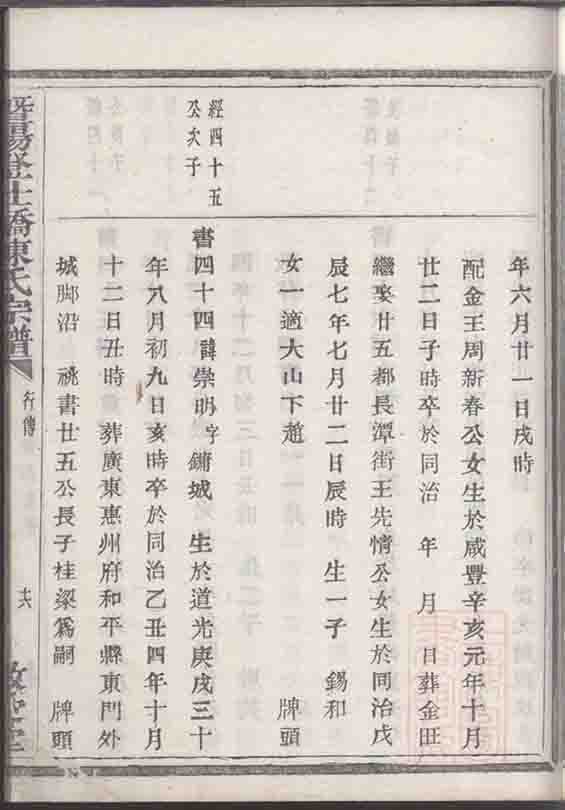 年六月廿一日戌時
配金王周新春公女生於咸豐辛亥元年十月
廿二日子時卒於同治 年 月 日葬金田
繼娶廿五都長潭街王先情公女生於同治戊
辰七年七月廿二日辰時 生一子 錫和
女一適大山下趙 牌頭
經四十五
公次子
書四十四諱崇明字鏞城 生於道光庚戌三十
年八月初九日亥時卒於同治乙丑四年十月
十二日丑時 葬廣東惠州府和平縣東門外
城脚沿 祧書廿五公長子桂梁爲嗣 牌頭
暨陽登仕橋陳氏宗譜
行傳
十六